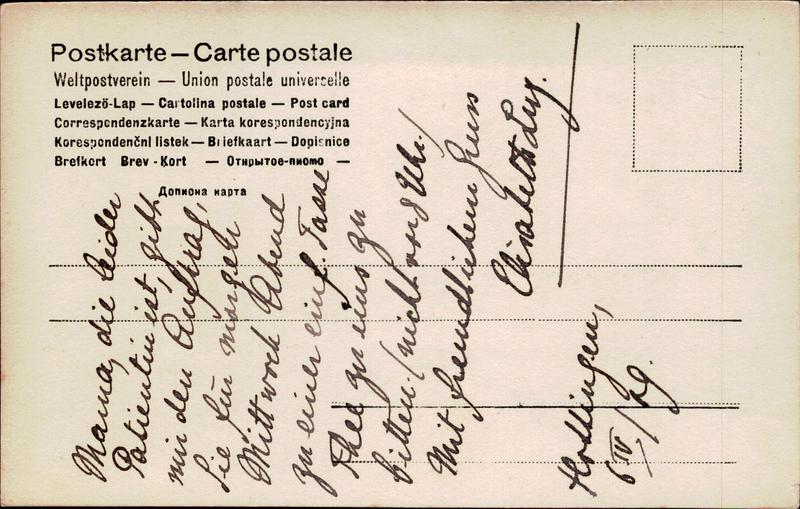 Postkarte — Carte postale
Weltpostverein — Union postale universelle
Levelező-Lap — Cartolina postale — Post card
Correspondenzkarte — Karta korespondencyjna
Korespondenční listek — Briefkaart — Dopisnice
Brefkort Brev-Kort — Открытое-письмо —
Дописна карта
Mama, die leider
Patientin ist, gibt
mir den Auftrag,
Sie für morgen
Mittwoch Abend
zu einer einf. Tasse
Thee zu uns zu
bitten. (nicht vor 8 Uhr.)
Mit freundlichem Gruss
Elisabeth
6/IV/